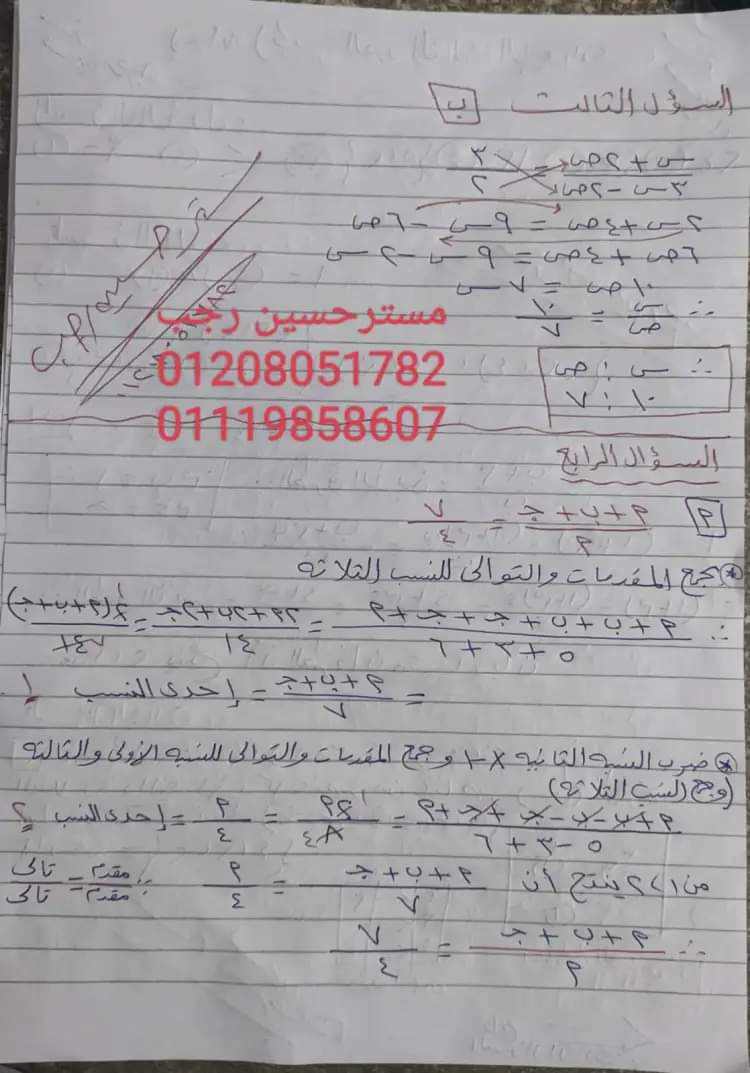 السؤال الثالث ب
س + ٢ص / ٣س - ٢ص = ٣ / ٢
٢س + ٤ص = ٩س - ٦ص
٦ص + ٤ص = ٩س - ٢س
١٠ص = ٧س
∴ س / ص = ١٠ / ٧
∴ س : ص
١٠ : ٧
مستر حسين رجب
01208051782
01119858607
السؤال الرابع
٩ م + ب + ج / م = ٧ / ٤
* بجمع المقدمات والتوالى للنسب الثلاثة
∴ م + ب + ب + ج + ج + م / ٥ + ٣ + ٦ = ٢م + ٢ب + ٢ج / ١٤ = ٢(م + ب + ج) / ١٤
= م + ب + ج / ٧ = إحدى النسب ١
* ضرب النسبة الثانية × -١ وجمع المقدمات والتوالى للنسبة الأولى والثالثة
(وجمع النسب الثلاثة)
م + ب - ب - ج + ج + م / ٥ - ٣ + ٦ = ٢م / ٨ = م / ٤ = إحدى النسب ٢
من ١، ٢ ينتج أن م + ب + ج / ٧ = م / ٤ ∵ مقدم / مقدم = تالى / تالى
∴ م + ب + ج / م = ٧ / ٤